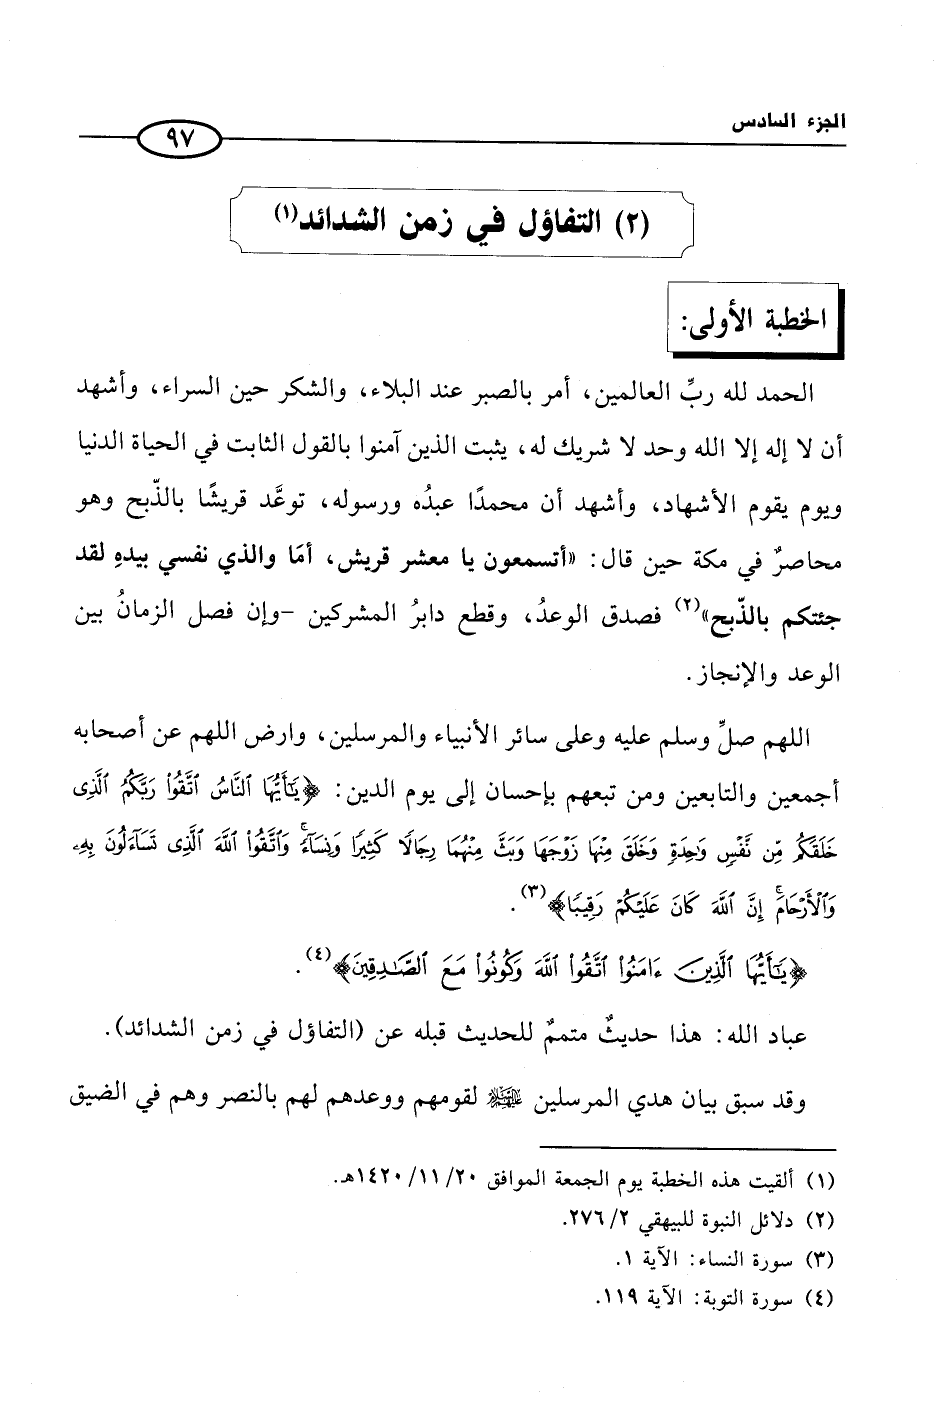 الجزء السادس
٩٧
(٢) التفاؤل في زمن الشدائد(١)
الخطبة الأولى:
الحمد لله ربِّ العالمين، أمر بالصبر عند البلاء، والشكر حين السراء، وأشهد
أن لا إله إلا الله وحد لا شريك له، يثبت الذين آمنوا بالقول الثابت في الحياة الدنيا
ويوم يقوم الأشهاد، وأشهد أن محمدًا عبدُه ورسوله، توعَّد قريشًا بالذّبح وهو
محاصرٌ في مكة حين قال: «أتسمعون يا معشر قريش، أمَا والذي نفسي بيدهِ لقد
جئتكم بالذّبح»(٢) فصدق الوعدُ، وقطع دابرُ المشركين -وإن فصل الزمانُ بين
الوعد والإنجاز.
اللهم صلِّ وسلم عليه وعلى سائر الأنبياء والمرسلين، وارض اللهم عن أصحابه
أجمعين والتابعين ومن تبعهم بإحسان إلى يوم الدين: ﴿يَٰٓأَيُّهَا ٱلنَّاسُ ٱتَّقُوا۟ رَبَّكُمُ ٱلَّذِى
خَلَقَكُم مِّن نَّفْسٍ وَٰحِدَةٍ وَخَلَقَ مِنْهَا زَوْجَهَا وَبَثَّ مِنْهُمَا رِجَالًا كَثِيرًا وَنِسَآءً ۚ وَٱتَّقُوا۟ ٱللَّهَ ٱلَّذِى تَسَآءَلُونَ بِهِۦ
وَٱلْأَرْحَامَ ۚ إِنَّ ٱللَّهَ كَانَ عَلَيْكُمْ رَقِيبًا﴾(٣).
﴿يَٰٓأَيُّهَا ٱلَّذِينَ ءَامَنُوا۟ ٱتَّقُوا۟ ٱللَّهَ وَكُونُوا۟ مَعَ ٱلصَّٰدِقِينَ﴾(٤).
عباد الله: هذا حديثٌ متممٌ للحديث قبله عن (التفاؤل في زمن الشدائد).
وقد سبق بيان هدي المرسلين لقومهم ووعدهم لهم بالنصر وهم في الضيق
(١) ألقيت هذه الخطبة يوم الجمعة الموافق ٢٠/١١/١٤٢٠هـ.
(٢) دلائل النبوة للبيهقي ٢/٢٧٦.
(٣) سورة النساء: الآية ١.
(٤) سورة التوبة: الآية ١١٩.